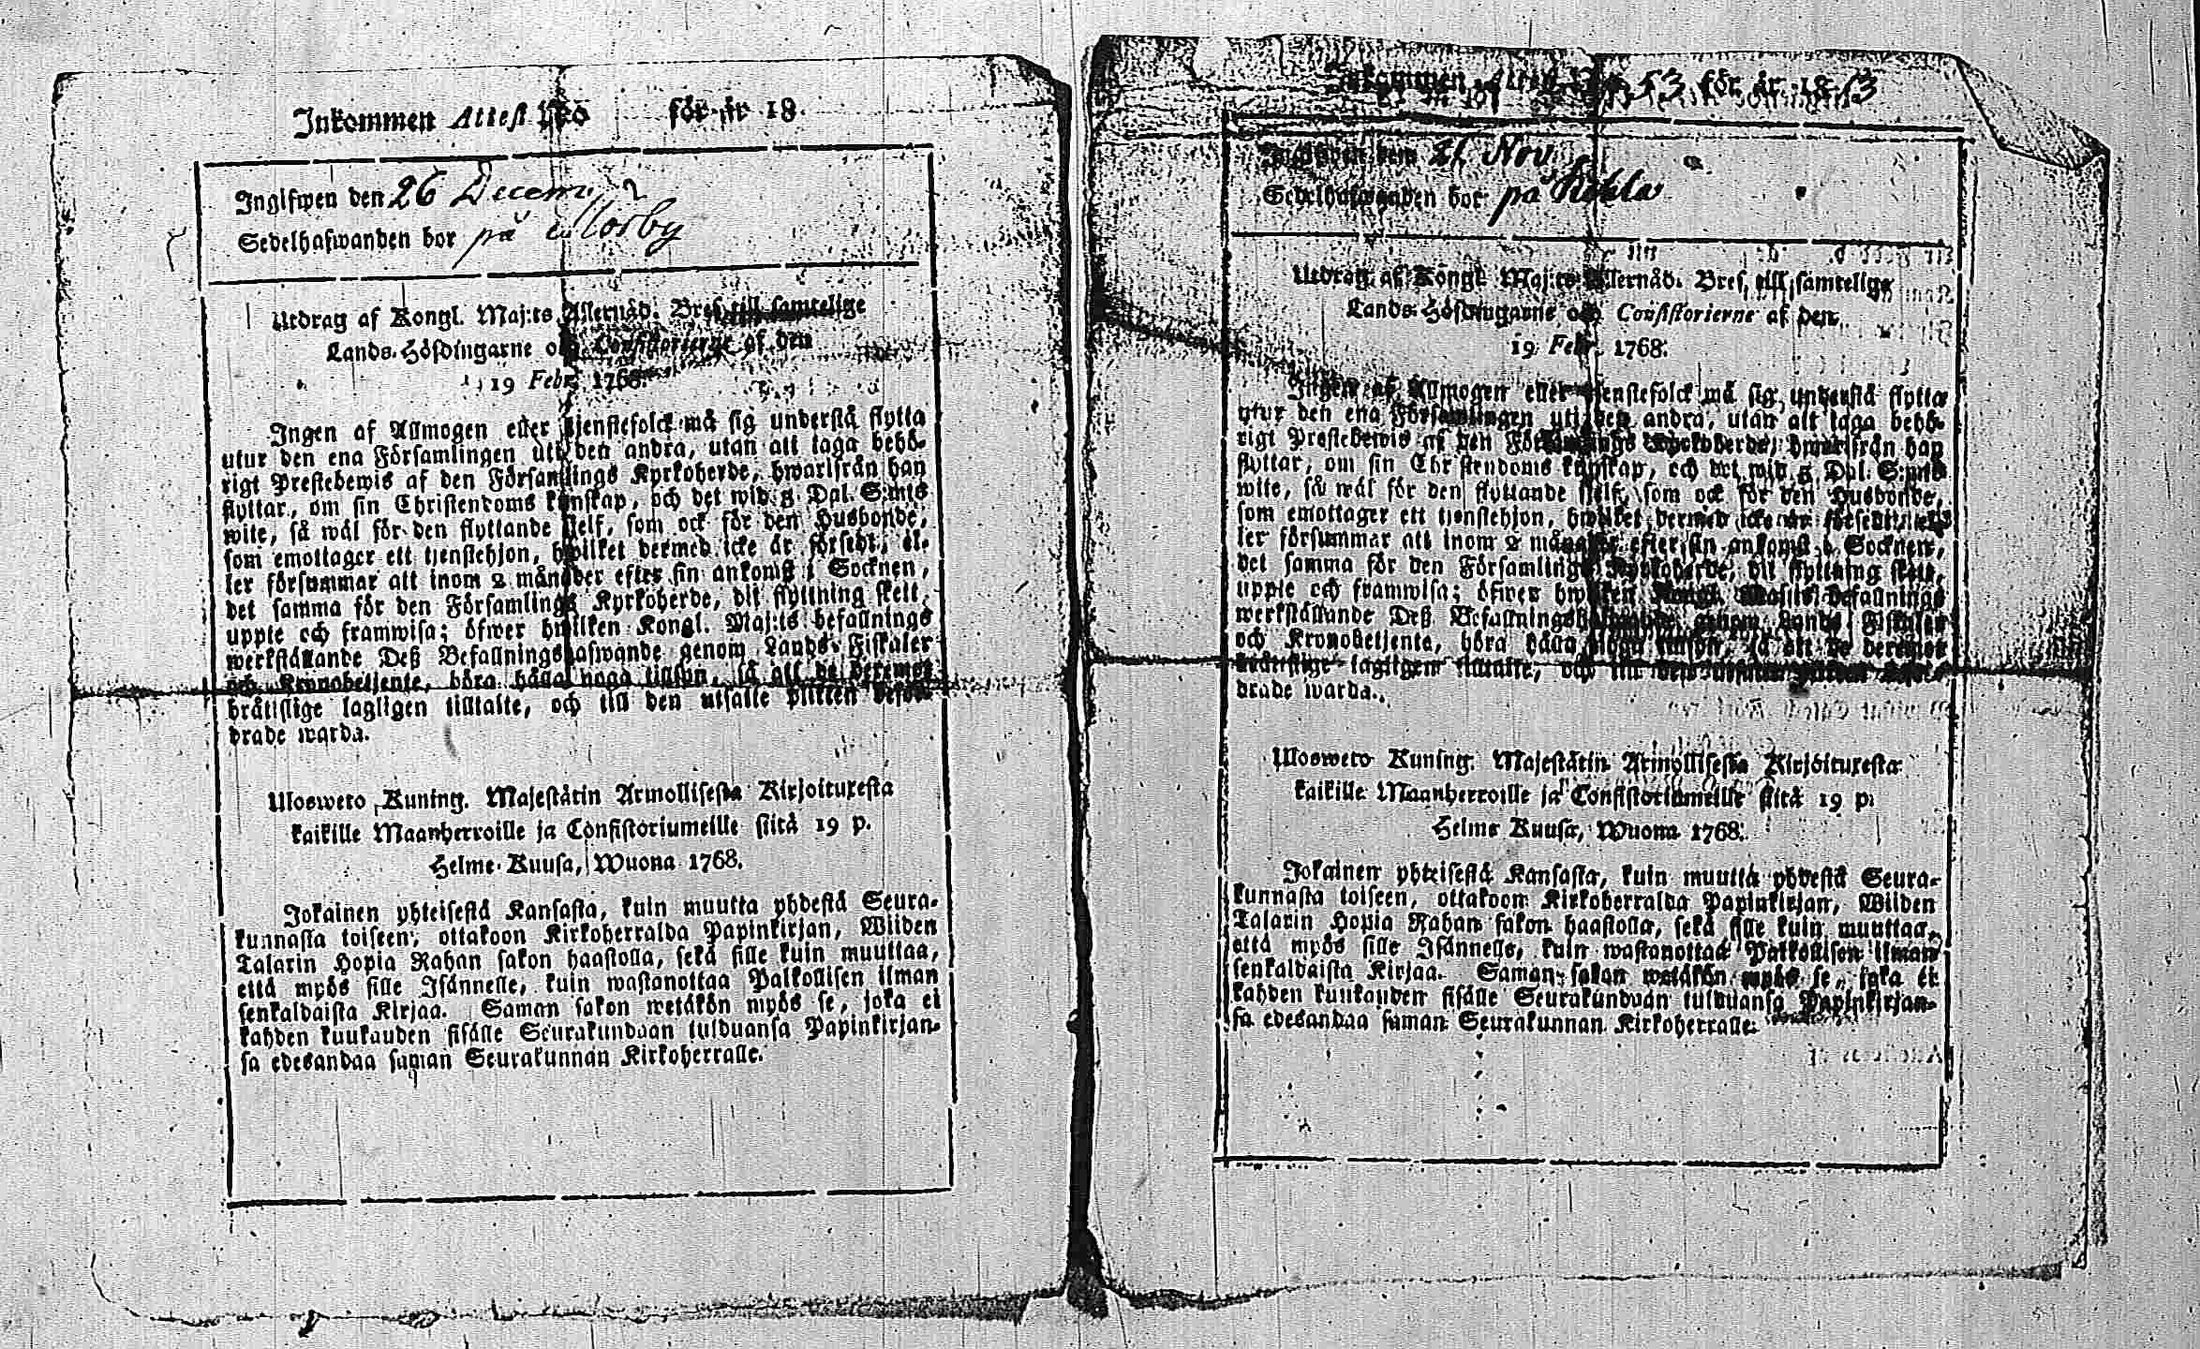 Inkommen Attest N:o för år 18
Ingifwen den 26 Decem
Sedelhafwanden bor på Morby
Utdrag af Kongl. Maj:ts Allernåd. Bref till samtelige
Lands-Höfdingarne och Consistorierne af den
19 Febr. 1768.
Ingen af Allmogen eller tjenstefolck må sig understå flytta
utur den ena Församlingen uti den andra, utan att taga behö-
rigt Prestebewis af den Församlings Kyrkoherde, hwarifrån han
flyttar, om sin Christendoms kunskap, och det wid 5 Dal. S:mts
wite, så wäl för den flyttande sjelf, som ock för den Husbonde,
som emottager ett tjenstehjon, hwilket dermed icke är försedt, el-
ler försummar att inom 2 månader efter sin ankomst i Socknen,
det samma för den Församlings Kyrkoherde, dit flyttning skett,
uppte och framwisa; öfwer hwilken Kongl. Maj:ts befallnings
werkställande Deß Befallningshafwande genom Lands-Fiskaler
och Kronobetjente, böra hålla noga tillsyn, så att de deremot
bråttslige lagligen tilltalte, och till den utsatte plikten befor-
drade warda.
Uloswето Kuning. Majestätin Armollisesta Kirjoituxesta
kaikille Maanherroille ja Consistoriumeille siitä 19 p.
Helme-Kuusa, Wuona 1768.
Jokainen yhteisestä Kansasta, kuin muutta yhdestä Seura-
kunnasta toiseen, ottakoon Kirkoherralda Papinkirjan, Wiiden
Talarin Hopia Rahan sakon haastolla, sekä sille kuin muuttaa,
että myös sille Isännelle, kuin wastanottaa Palkollisen ilman
senkaldaista Kirjaa. Saman sakon wetäkön myös se, joka ei
kahden kuukauden sisälle Seurakundaan tulduansa Papinkirjan-
sa edesandaa saman Seurakunnan Kirkoherralle.
Inkommen Attest N:o 53 för år 1813
Ingifwen den 21 Nov
Sedelhafwanden bor på
Utdrag af Kongl. Maj:ts Allernåd. Bref till samtelige
Lands-Höfdingarne och Consistorierne af den
19 Febr. 1768.
Ingen af Allmogen eller tjenstefolck må sig understå flytta
utur den ena Församlingen uti den andra, utan att taga behö-
rigt Prestebewis af den Församlings Kyrkoherde, hwarifrån han
flyttar, om sin Christendoms kunskap, och det wid 5 Dal. S:mts
wite, så wäl för den flyttande sjelf, som ock för den Husbonde,
som emottager ett tjenstehjon, hwilket dermed icke är försedt, el-
ler försummar att inom 2 månader efter sin ankomst i Socknen,
det samma för den Församlings Kyrkoherde, dit flyttning skett,
uppte och framwisa; öfwer hwilken Kongl. Maj:ts befallnings
werkställande Deß Befallningshafwande genom Lands-Fiskaler
och Kronobetjente, böra hålla noga tillsyn, så att de deremot
bråttslige lagligen tilltalte, och till den utsatte
drade warda.
Uloswето Kuning. Majestätin Armollisesta Kirjoituxesta
kaikille Maanherroille ja Consistoriumeille siitä 19 p.
Helme Kuusa, Wuona 1768.
Jokainen yhteisestä Kansasta, kuin muutta yhdestä Seura-
kunnasta toiseen, ottakoon Kirkoherralda Papinkirjan, Wiiden
Talarin Hopia Rahan sakon haastolla, sekä sille kuin muuttaa,
että myös sille Isännelle, kuin wastanottaa Palkollisen ilman
senkaldaista Kirjaa. Saman sakon wetäkön myös se, joka ei
kahden kuukauden sisälle Seurakundaan tulduansa Papinkirjan-
sa edesandaa saman Seurakunnan Kirkoherralle.